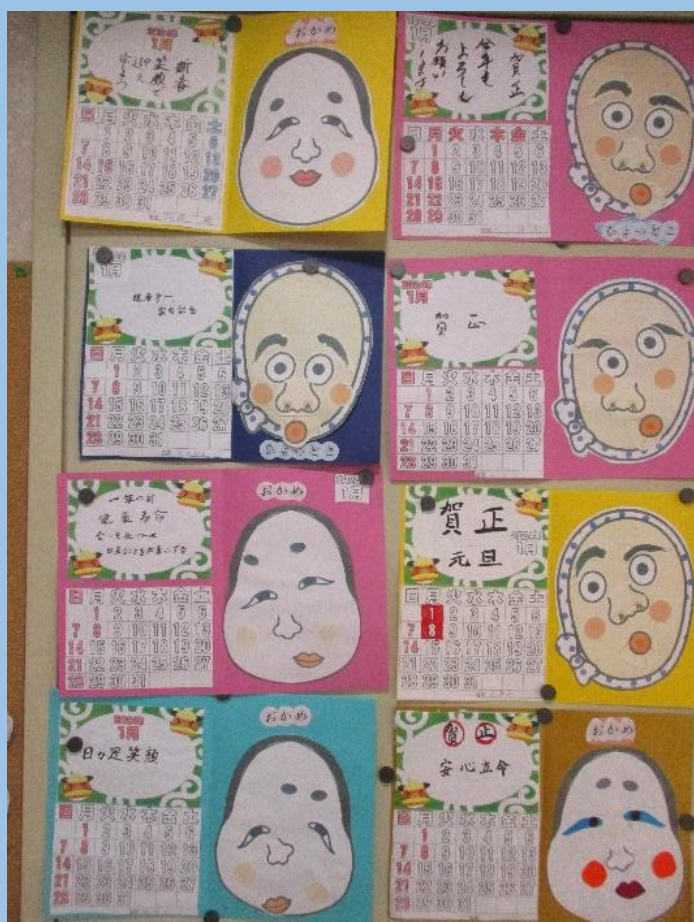 おかめ
2024年
1月
新春
笑顔で
迎え
日 月 火 水 木 金 土
1 2 3 4 5 6
7 8 9 10 11 12 13
14 15 16 17 18 19 20
21 22 23 24 25 26 27
28 29 30 31
1月
賀正
今年も
よろしく
お願い
します
日 月 火 水 木 金 土
1 2 3 4 5 6
7 8 9 10 11 12 13
14 15 16 17 18 19 20
21 22 23 24 25 26 27
28 29 30 31
ひょっとこ
1月
日 月 火 水 木 金 土
1 2 3 4 5 6
7 8 9 10 11 12 13
14 15 16 17 18 19 20
21 22 23 24 25 26 27
28 29 30 31
ひょっとこ
2024年
1月
賀正
日 月 火 水 木 金 土
1 2 3 4 5 6
7 8 9 10 11 12 13
14 15 16 17 18 19 20
21 22 23 24 25 26 27
28 29 30 31
おかめ
1月
一年の計
健康寿命
日 月 火 水 木 金 土
1 2 3 4 5 6
7 8 9 10 11 12 13
14 15 16 17 18 19 20
21 22 23 24 25 26 27
28 29 30 31
賀正
元旦
2024年
1月
日 月 火 水 木 金 土
1 2 3 4 5 6
7 8 9 10 11 12 13
14 15 16 17 18 19 20
21 22 23 24 25 26 27
28 29 30 31
おかめ
2024年
1月
日々是笑顔
日 月 火 水 木 金 土
1 2 3 4 5 6
7 8 9 10 11 12 13
14 15 16 17 18 19 20
21 22 23 24 25 26 27
28 29 30 31
おかめ
賀 正
安心立命
日 月 火 水 木 金 土
1 2 3 4 5 6
7 8 9 10 11 12 13
14 15 16 17 18 19 20
21 22 23 24 25 26 27
28 29 30 31